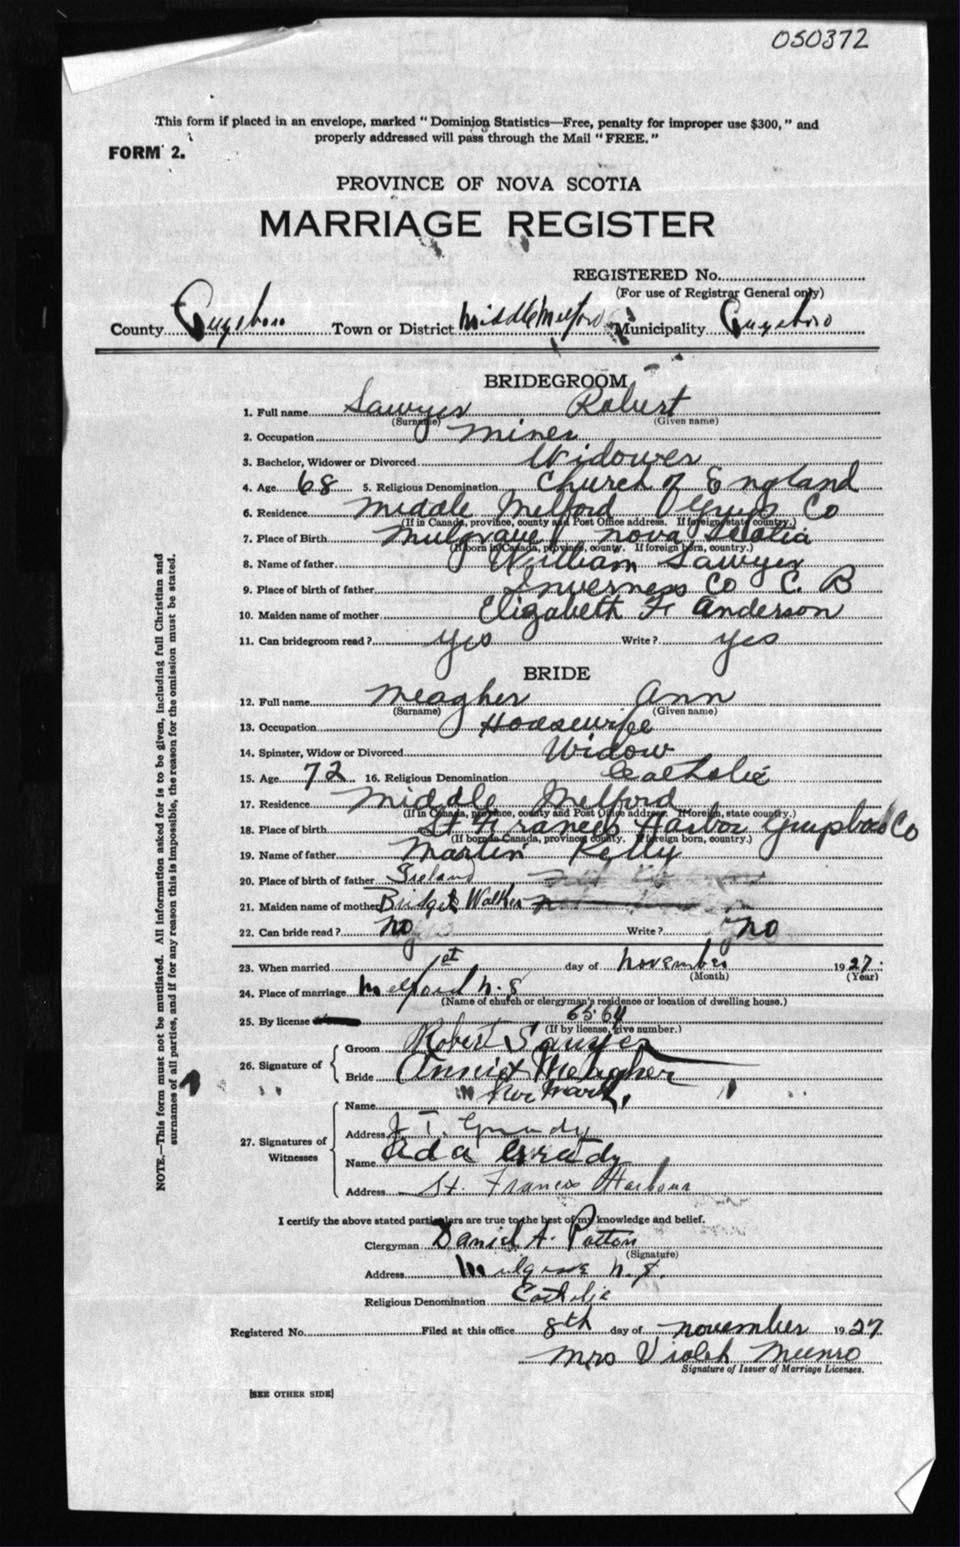 050372
This form if placed in an envelope, marked "Dominion Statistics—Free, penalty for improper use $300," and
properly addressed will pass through the Mail "FREE."
FORM 2.
PROVINCE OF NOVA SCOTIA
MARRIAGE REGISTER
REGISTERED No.
(For use of Registrar General only)
County Guysboro Town or District Middle Melford Municipality Guysboro
BRIDEGROOM
1. Full name Sawyer Robert
(Surname) (Given name)
2. Occupation Miner
3. Bachelor, Widower or Divorced Widower
4. Age 68 5. Religious Denomination Church of England
6. Residence Middle Melford Guys Co
(If in Canada, province, county and Post Office address. If foreign, state country.)
7. Place of Birth Mulgrave Nova Scotia
(If born in Canada, province, county. If foreign born, country.)
8. Name of father William Sawyer
9. Place of birth of father Inverness Co C. B
10. Maiden name of mother Elizabeth F Anderson
11. Can bridegroom read? yes Write? yes
BRIDE
12. Full name Meagher Ann
(Surname) (Given name)
13. Occupation Housewife
14. Spinster, Widow or Divorced Widow
15. Age 72 16. Religious Denomination Catholic
17. Residence Middle Melford
(If in Canada, province, county and Post Office address. If foreign, state country.)
18. Place of birth St Frances Harbor Guysboro Co
(If born in Canada, province, county. If foreign born, country.)
19. Name of father Martin Kelly
20. Place of birth of father Ireland
21. Maiden name of mother Bridget Walker
22. Can bride read? no Write? no
23. When married 1st day of November 1927.
(Month) (Year)
24. Place of marriage Melford N. S
(Name of church or clergyman's residence or location of dwelling house.)
25. By license 6564
(If by license, give number.)
26. Signature of
Groom Robert Sawyer
Bride Annie X Meagher
her mark.
27. Signatures of Witnesses
Name
Address J. T. Grady
Name Ada Grady
Address St. Francis Harbour
I certify the above stated particulars are true to the best of my knowledge and belief.
Clergyman Daniel A. Patton
(Signature)
Address Mulgrave N. S.
Religious Denomination Catholic
Registered No. Filed at this office 8th day of November 1927
Mrs Violet Munro
Signature of Issuer of Marriage Licenses.
[SEE OTHER SIDE]
NOTE.—This form must not be mutilated. All information asked for is to be given, including full Christian and
surnames of all parties, and if for any reason this is impossible, the reason for the omission must be stated.